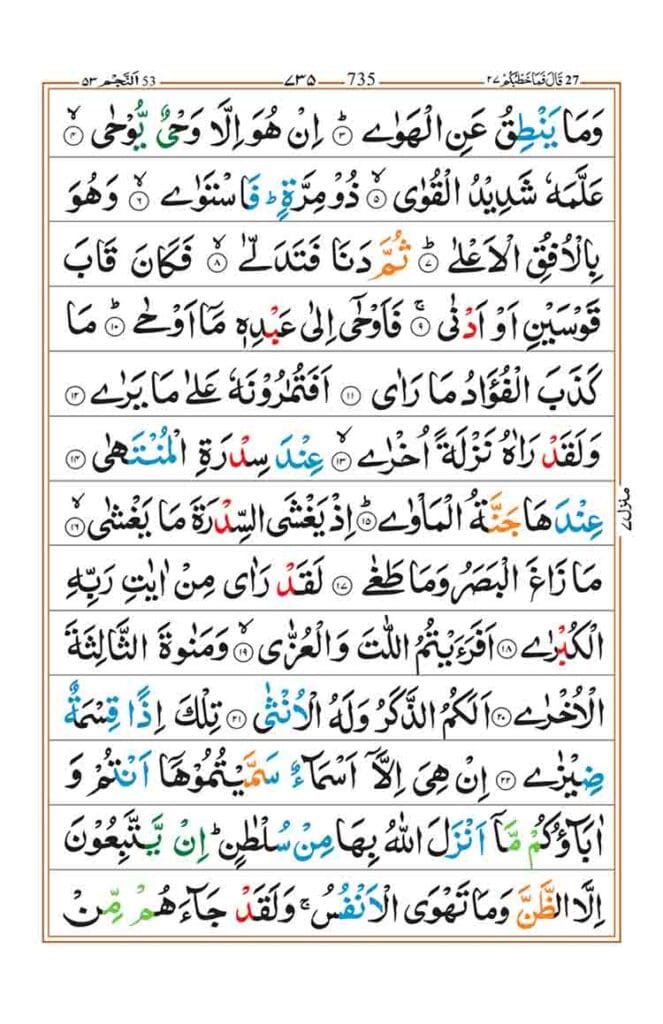 27 قَالَ فَمَا خَطْبُكُمْ ٢٧ 735 ٧٣٥ 53 اَلنَّجْم ٥٣
وَمَا يَنْطِقُ عَنِ الْهَوٰى ؕ‏ ﴿۳﴾ اِنْ هُوَ اِلَّا وَحْىٌ يُّوْحٰى ۙ‏ ﴿۴﴾
عَلَّمَهٗ شَدِيْدُ الْقُوٰى ۙ‏ ﴿۵﴾ ذُوْ مِرَّةٍ ؕ فَاسْتَوٰى ۙ‏ ﴿۶﴾ وَهُوَ
بِالْاُفُقِ الْاَعْلٰى ؕ‏ ﴿۷﴾ ثُمَّ دَنَا فَتَدَلّٰى ۙ‏ ﴿۸﴾ فَكَانَ قَابَ
قَوْسَيْنِ اَوْ اَدْنٰى‌ ۚ‏ ﴿۹﴾ فَاَوْحٰۤى اِلٰى عَبْدِهٖ مَاۤ اَوْحٰى ؕ‏ ﴿۱۰﴾ مَا
كَذَبَ الْفُؤَادُ مَا رَاٰى‏ ﴿۱۱﴾ اَفَتُمٰرُوْنَهٗ عَلٰى مَا يَرٰى‏ ﴿۱۲﴾
وَلَقَدْ رَاٰهُ نَزْلَةً اُخْرٰى ۙ‏ ﴿۱۳﴾ عِنْدَ سِدْرَةِ الْمُنْتَهٰى‏ ﴿۱۴﴾
عِنْدَهَا جَنَّةُ الْمَاْوٰى ؕ‏ ﴿۱۵﴾ اِذْ يَغْشَى السِّدْرَةَ مَا يَغْشٰى ۙ‏ ﴿۱۶﴾
منزل ٧
مَا زَاغَ الْبَصَرُ وَمَا طَغٰى‏ ﴿۱۷﴾ لَقَدْ رَاٰى مِنْ اٰيٰتِ رَبِّهِ
الْكُبْرٰى‏ ﴿۱۸﴾ اَفَرَءَيْتُمُ اللّٰتَ وَالْعُزّٰى ۙ‏ ﴿۱۹﴾ وَمَنٰوةَ الثَّالِثَةَ
الْاُخْرٰى‏ ﴿۲۰﴾ اَلَكُمُ الذَّكَرُ وَلَهُ الْاُنْثٰى‏ ﴿۲۱﴾ تِلْكَ اِذًا قِسْمَةٌ
ضِيْزٰى‏ ﴿۲۲﴾ اِنْ هِىَ اِلَّاۤ اَسْمَآءٌ سَمَّيْتُمُوْهَاۤ اَنْتُمْ وَ
اٰبَآؤُكُمْ مَّاۤ اَنْزَلَ اللّٰهُ بِهَا مِنْ سُلْطٰنٍ‌ؕ اِنْ يَّتَّبِعُوْنَ
اِلَّا الظَّنَّ وَمَا تَهْوَى الْاَنْفُسُ‌ۚ وَلَقَدْ جَآءَهُمْ مِّنْ